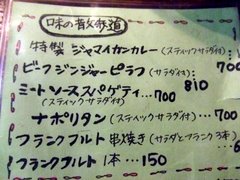 味の散歩道
特製 ジャマイカンカレー(スティックサラダ付)
ビーフジンジャーピラフ(サラダ付) 700
ミートソーススパゲティ 810
(スティックサラダ付) …700
ナポリタン(スティックサラダ付)…700
フランクフルト 串焼き(サラダとフランク3本)
フランクフルト 1本…150